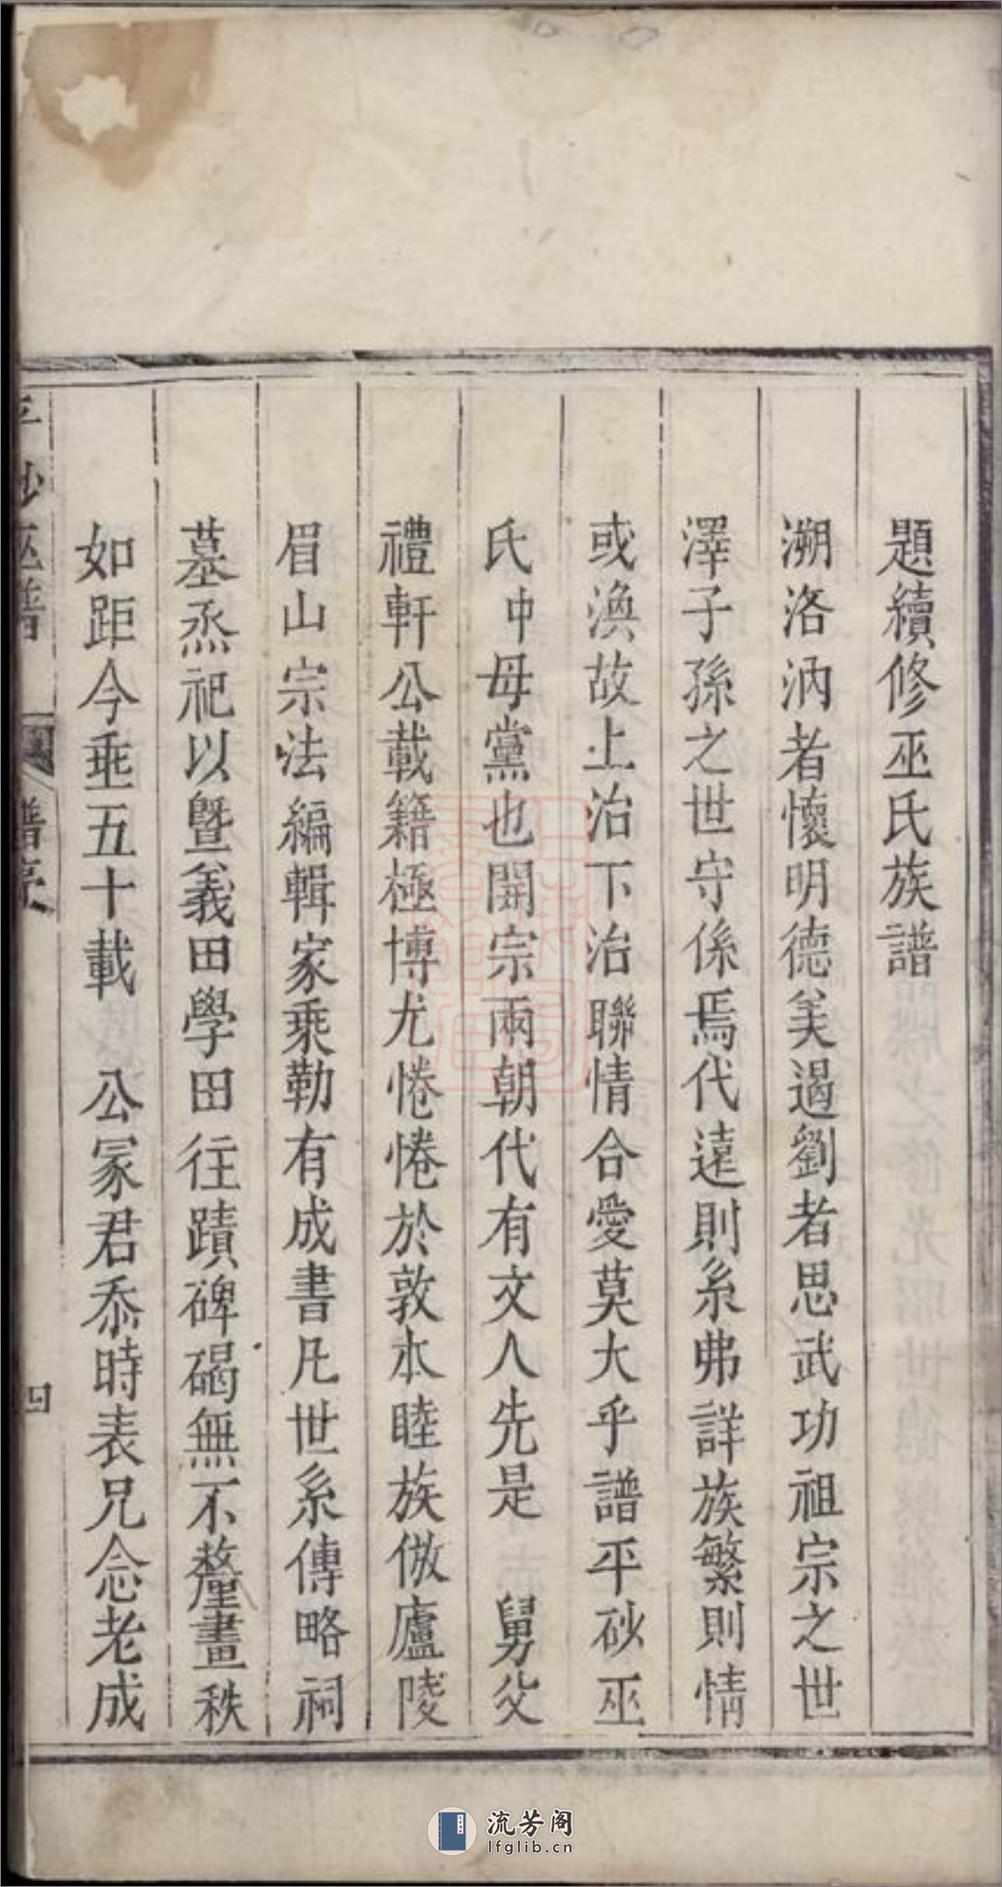 題續修巫氏族譜
溯洛汭者懷明德美過劉者思武功祖宗之世
澤子孫之世守係焉代遠則系弗詳族繁則情
或渙故上治下治聯情合愛莫大乎譜平砂巫
氏中母黨也開宗兩朝代有文人先是　舅父
禮軒公載籍極博尤惓惓於敦本睦族倣廬陵
眉山宗法編輯家乘勒有成書凡世系傳略祠
墓烝祀以曁義田學田往蹟碑碣無不釐畫秩
如距今垂五十載　公冢君忝時表兄念老成
平砂巫譜　譜序　四
流芳阁
lfglib.cn